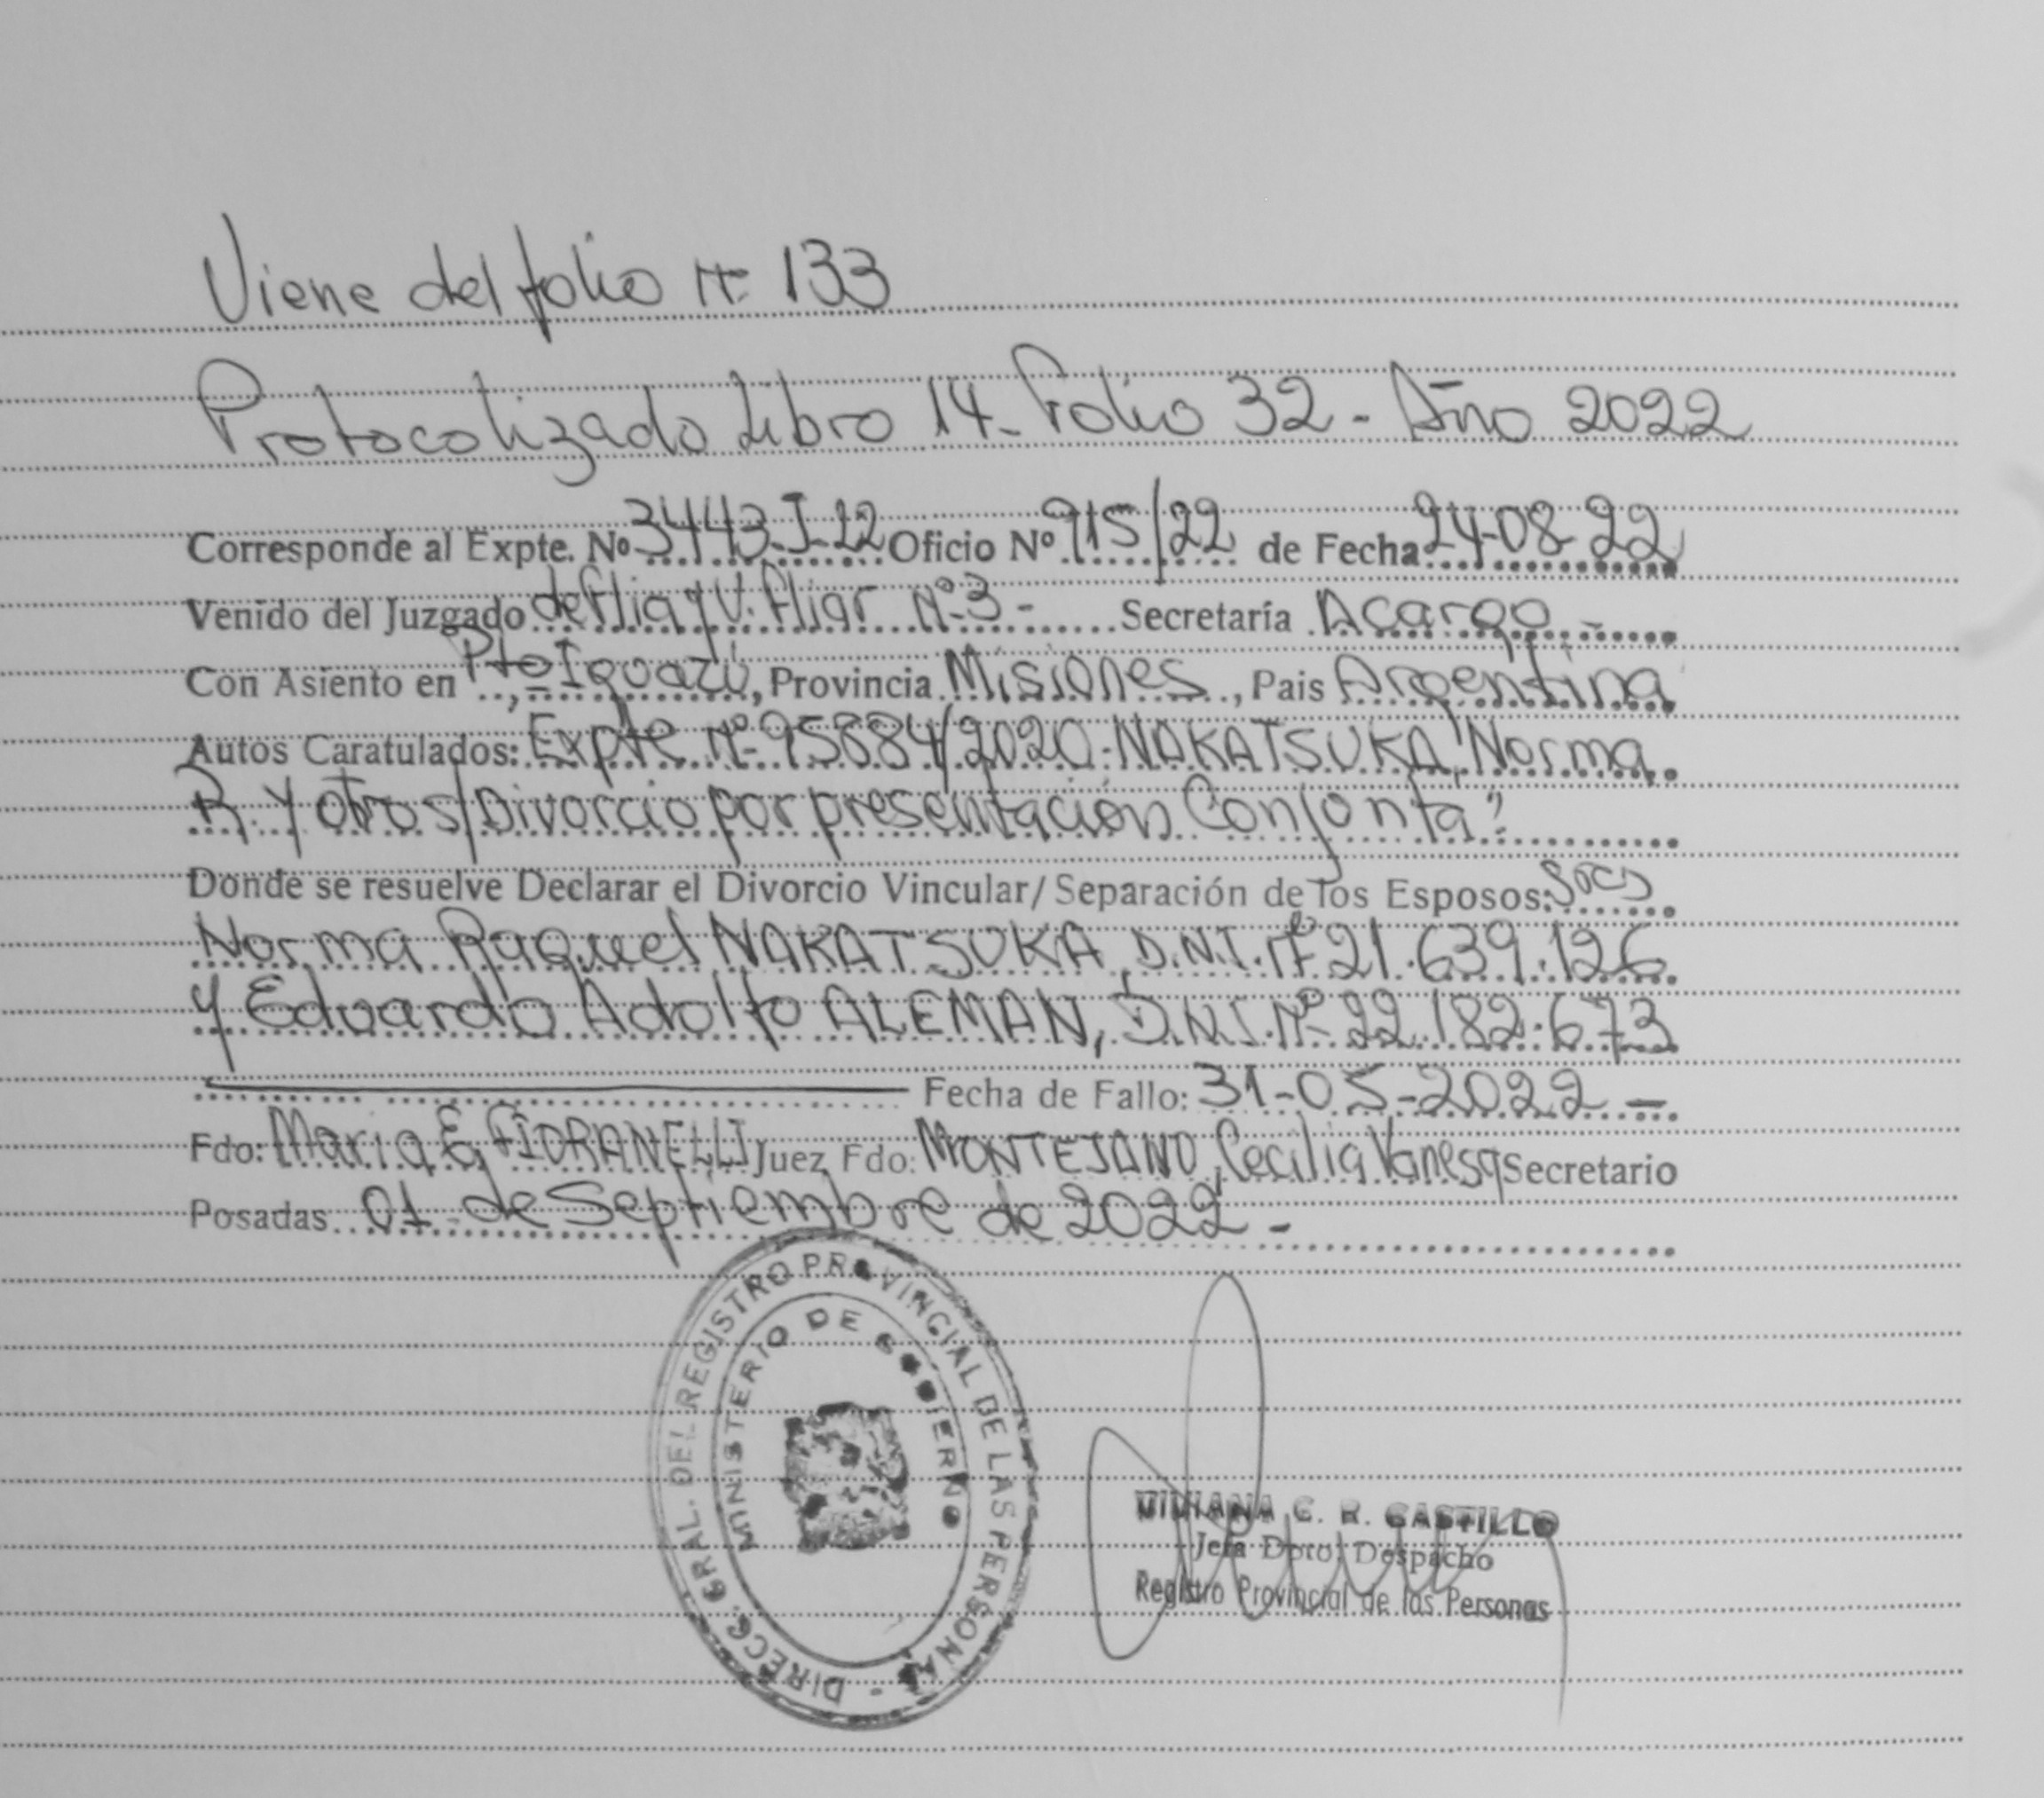 Viene del folio Nº 133
Protocolizado Libro 14 - Folio 32 - Año 2022
Corresponde al Expte. Nº 3443-I-22 Oficio Nº 915/22 de Fecha 24-08-22
Venido del Juzgado de Flia y V. Fliar Nº 3 - Secretaría A cargo -
Con Asiento en Pto Iguazú, Provincia Misiones, Pais Argentina
Autos Caratulados: Expte Nº 95884/2020 - NAKATSUKA, Norma
R. y otro s/Divorcio por presentación Conjunta"
Donde se resuelve Declarar el Divorcio Vincular/ Separación de los Esposos:
Norma Raquel NAKATSUKA, D.N.I. Nº 21.639.126
y Eduardo Adolfo ALEMAN, D.N.I. Nº 22.182.673
Fecha de Fallo: 31-05-2022 -
Fdo: Maria E. FIORANELLI Juez Fdo: MONTEJANO, Cecilia Vanesa Secretario
Posadas 01 de Septiembre de 2022 -
DIRECC. GRAL. DEL REGISTRO PROVINCIAL DE LAS PERSONAS -
MINISTERIO DE GOBIERNO
VIVIANA C. R. CASTILLO
Jefa Dpto. Despacho
Registro Provincial de las Personas